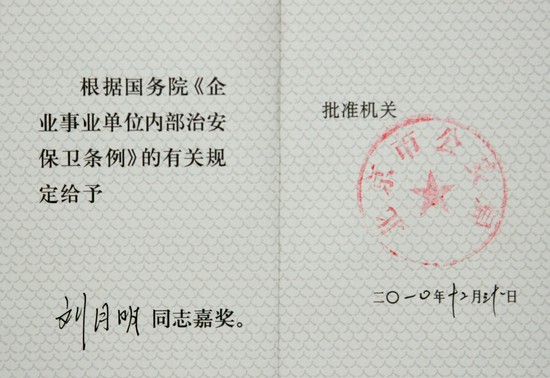 根据国务院《企
业事业单位内部治安
保卫条例》的有关规
定给予
刘月明 同志嘉奖。
批准机关
北京市公安局
二〇一〇年十二月 日